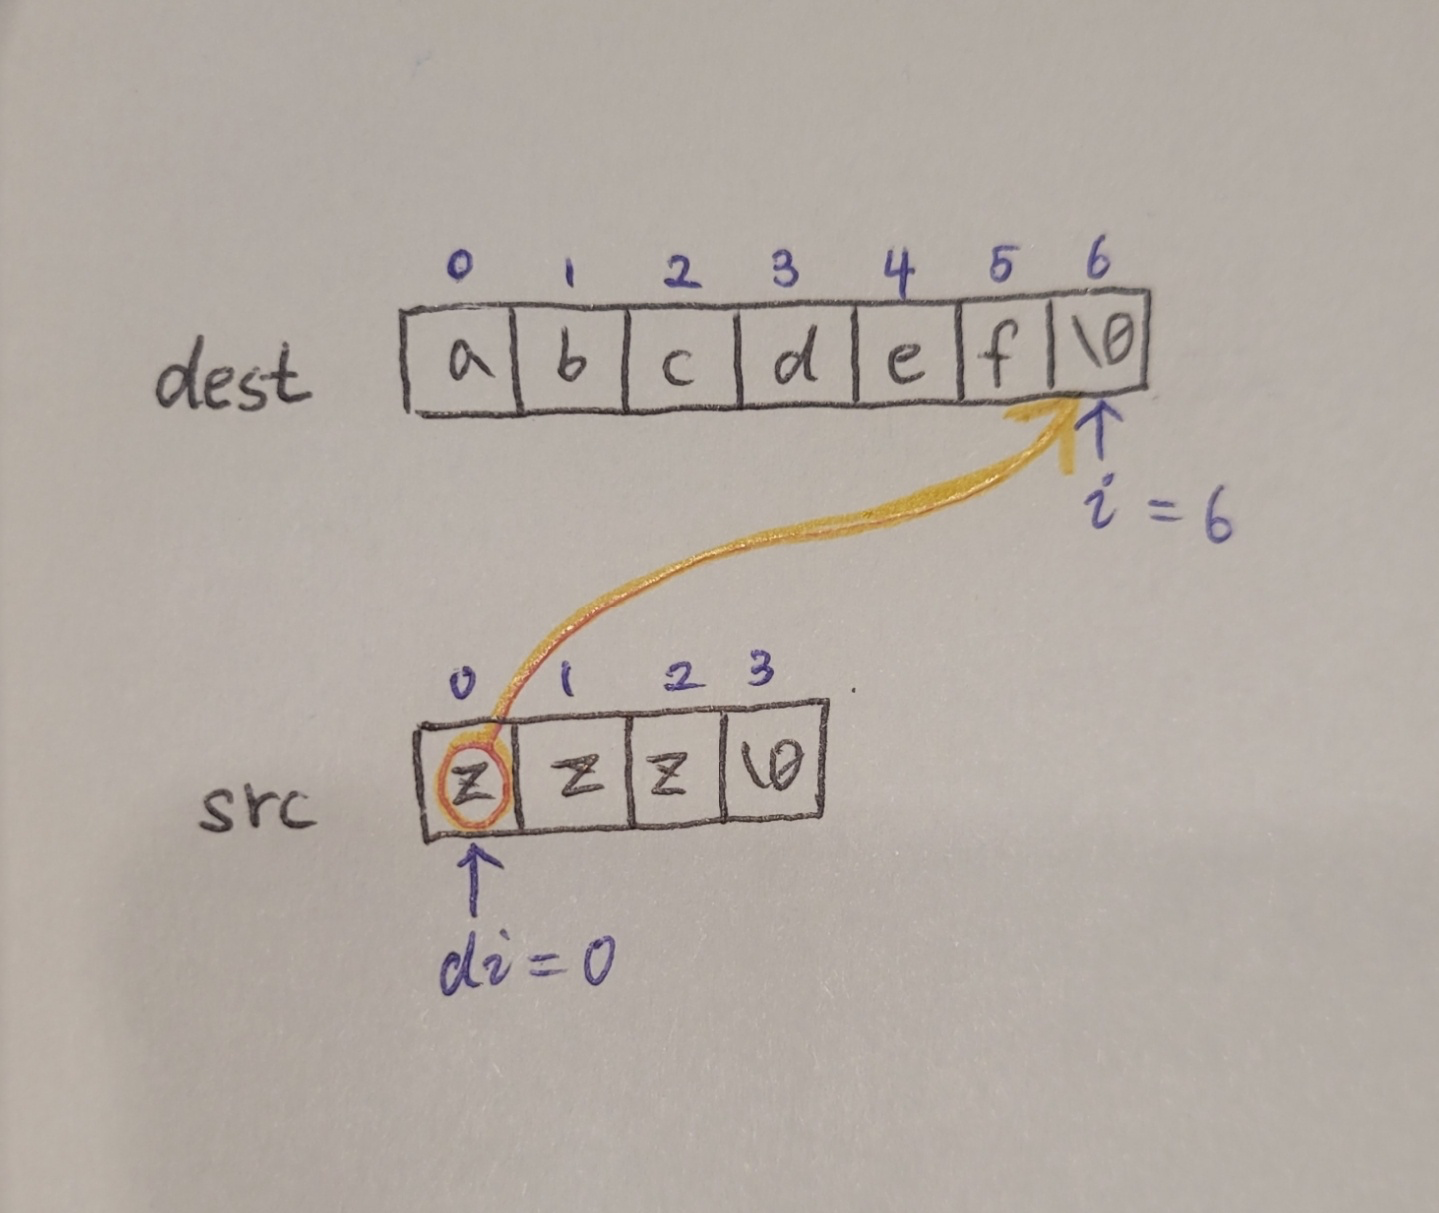 0 1 2 3 4 5 6
dest a b c d e f \0
i = 6
0 1 2 3
src z z z \0
di = 0